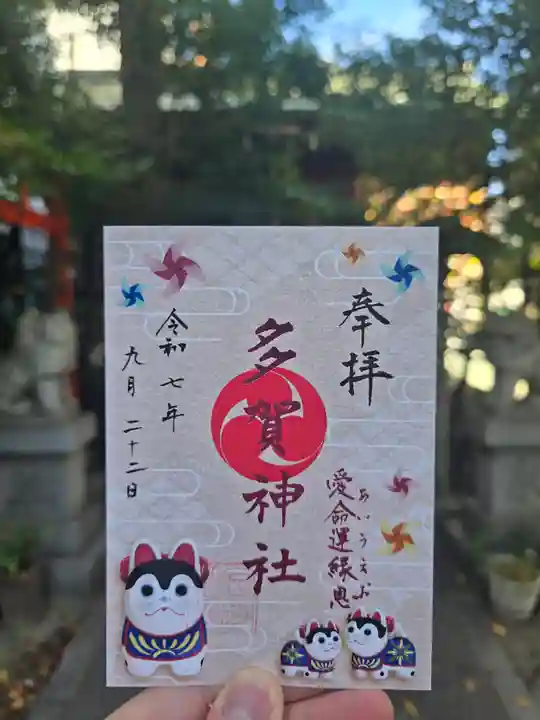 奉拝
あいうえお
愛命運縁恩
多賀神社
令和七年
九月二十二日